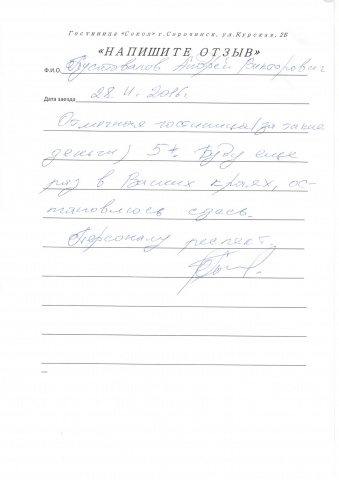 Гостиница «Сокол» г.Сорочинск, ул.Курская, 2Б
«НАПИШИТЕ ОТЗЫВ»
Ф.И.О. Пустовалов Андрей Викторович
Дата заезда 28.11.2016г.
Отличная гостиница (за такие
деньги) 5+. Буду еще
раз в Ваших краях, ос-
тановлюсь здесь.
Персоналу респект.